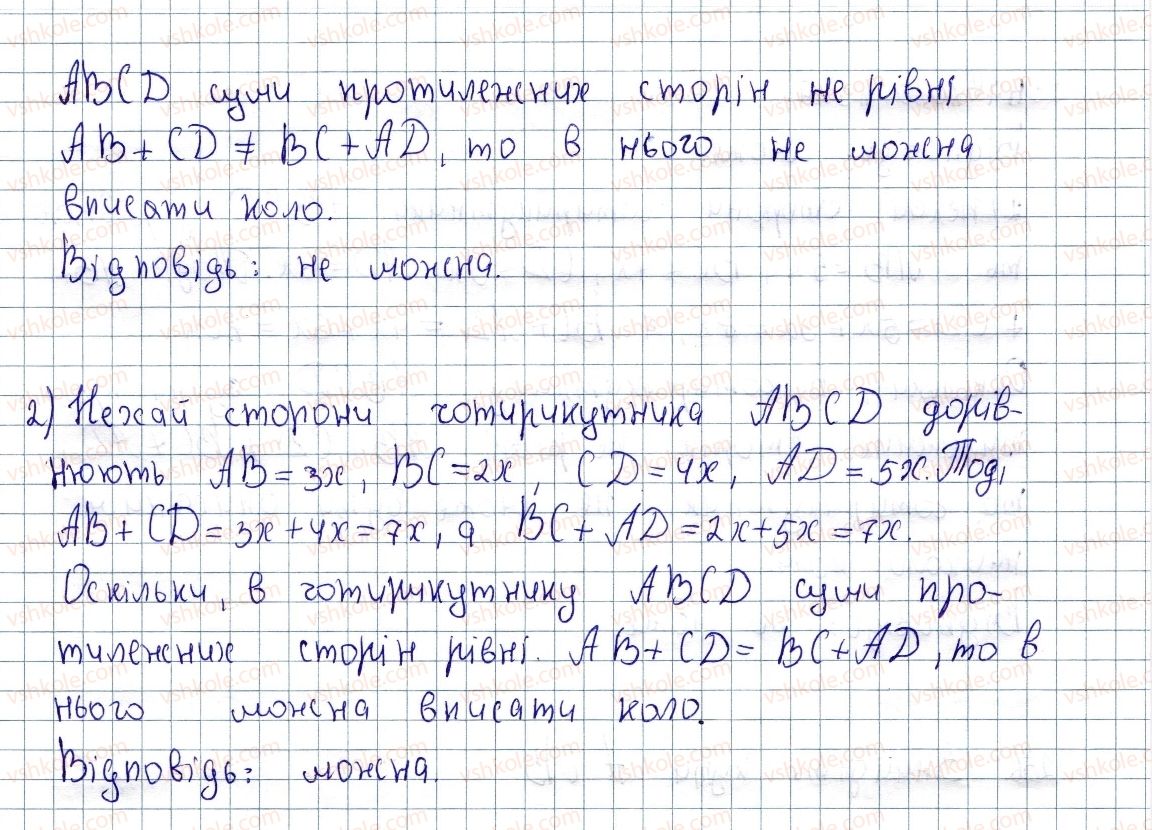 ABCD суми протилежних сторін не рівні
AB + CD ≠ BC + AD, то в нього не можна
вписати коло.
Відповідь: не можна.
2) Нехай сторони чотирикутника ABCD дорів-
нюють AB = 3x, BC = 2x, CD = 4x, AD = 5x. Тоді
AB + CD = 3x + 4x = 7x, а BC + AD = 2x + 5x = 7x.
Оскільки, в чотирикутнику ABCD суми про-
тилежних сторін рівні. AB + CD = BC + AD, то в
нього можна вписати коло.
Відповідь: можна.
vshkole.com